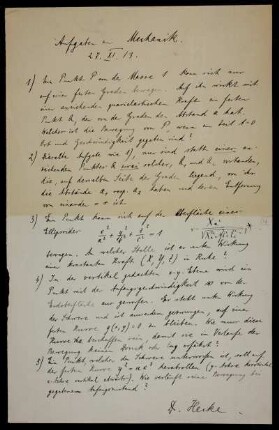 Aufgaben in Mechanik.
27. XI 13.
1) Ein Punkt P von der Masse 1 kann sich nur
auf einer festen Graden bewegen. Auf ihn wirkt mit
anziehender Kraft ein fester
Punkt A, der von der Graden den Abstand a hat.
Welches ist die Bewegung von P, wenn zur Zeit t=0
Ort und Geschwindigkeit gegeben sind?
2) Dieselbe Aufgabe wie 1), nur wird statt einem
Punkte A zwei solcher, A₁ und A₂ vorhanden,
die, auf derselben Seite der Graden liegend, von ihr
die Abstände a₁ resp. a₂ haben und deren Entfernung
von einander ist.
3) Ein Punkt kann sich auf der Oberfläche eines
Ellipsoides x²/a² + y²/b² + z²/c² = 1
bewegen. An welcher Stelle ist er unter Wirkung
der konstanten Kraft (X, Y, Z) in Ruhe?
4) In der vertikal gedachten x-y Ebene wird ein
Punkt mit der Anfangsgeschwindigkeit von der
aus geworfen. Er steht unter Wirkung
der Schwere und ist gezwungen, auf einer
festen Kurve φ(x,y)=0 zu bleiben. Wie muss diese
Kurve beschaffen sein, damit sie im Verlaufe der
Bewegung keinen Druck erfährt?
5) Ein Punkt, welcher der Schwere unterworfen ist, soll auf
der festen Kurve
vertikal. Wie verläuft seine Bewegung bei
gegebenem Anfangszustand?
Dr. Hecke